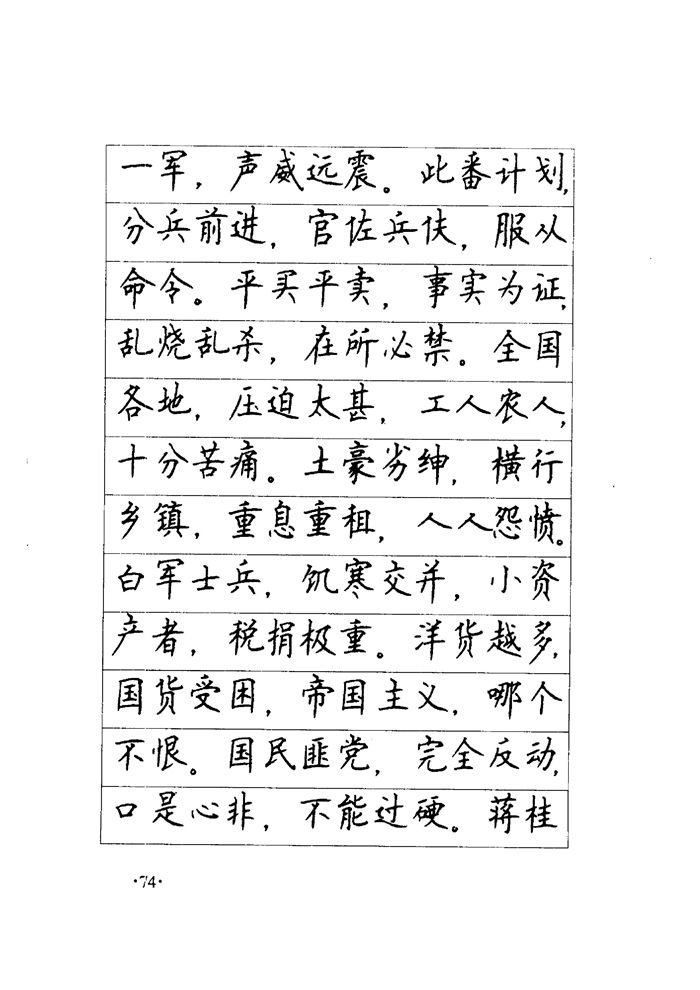 一军，声威远震。此番计划，
分兵前进，官佐兵伕，服从
命令。平买平卖，事实为证，
乱烧乱杀，在所必禁。全国
各地，压迫太甚，工人农人，
十分苦痛。土豪劣绅，横行
乡镇，重息重租，人人怨愤。
白军士兵，饥寒交并，小资
产者，税捐极重。洋货越多，
国货受困，帝国主义，哪个
不恨。国民匪党，完全反动，
口是心非，不能过硬。蒋桂
·74·